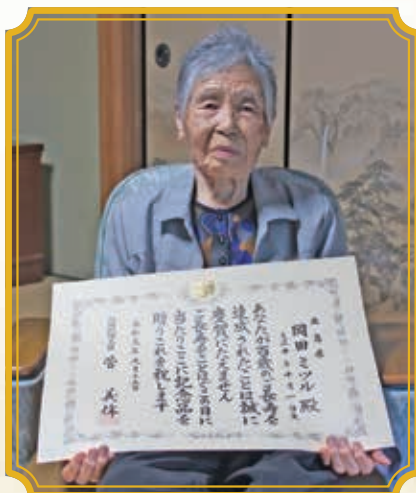 岡田ミツル殿
あなたが百歳のご長寿を
達成されたことは誠に
慶賀にたえません
ご長寿をことほぐ本日に
当たりここに記念品を
贈りこれを祝します
令和三年九月十五日
内閣総理大臣 菅 義偉